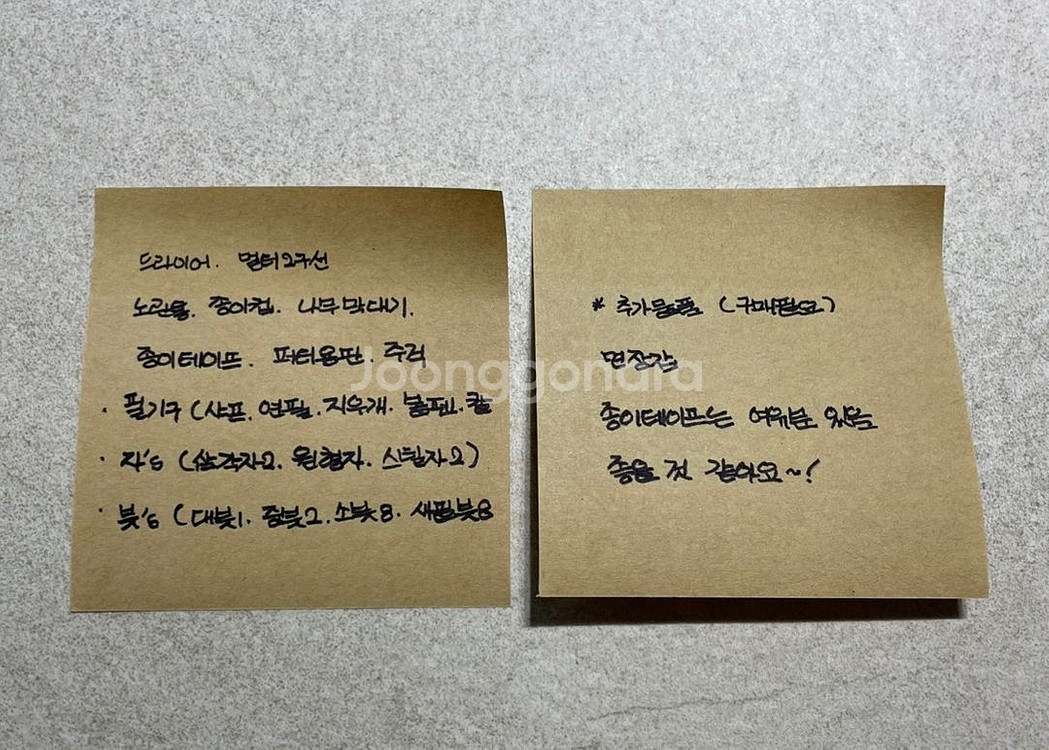 드라이어. 멀티2구선
노란물. 종이컵. 나무막대기.
종이테이프. 퍼티용판. 주걱
· 필기구 (샤프. 연필. 지우개. 볼펜. 칼
· 자's (삼각자2. 원형자. 스틸자2)
· 붓's (대붓1. 중붓2. 소붓8. 새필붓8
* 추가물품 (구매필요)
면장갑
종이테이프는 여유분 있음
좋을 것 같아요~!
Joonggonara